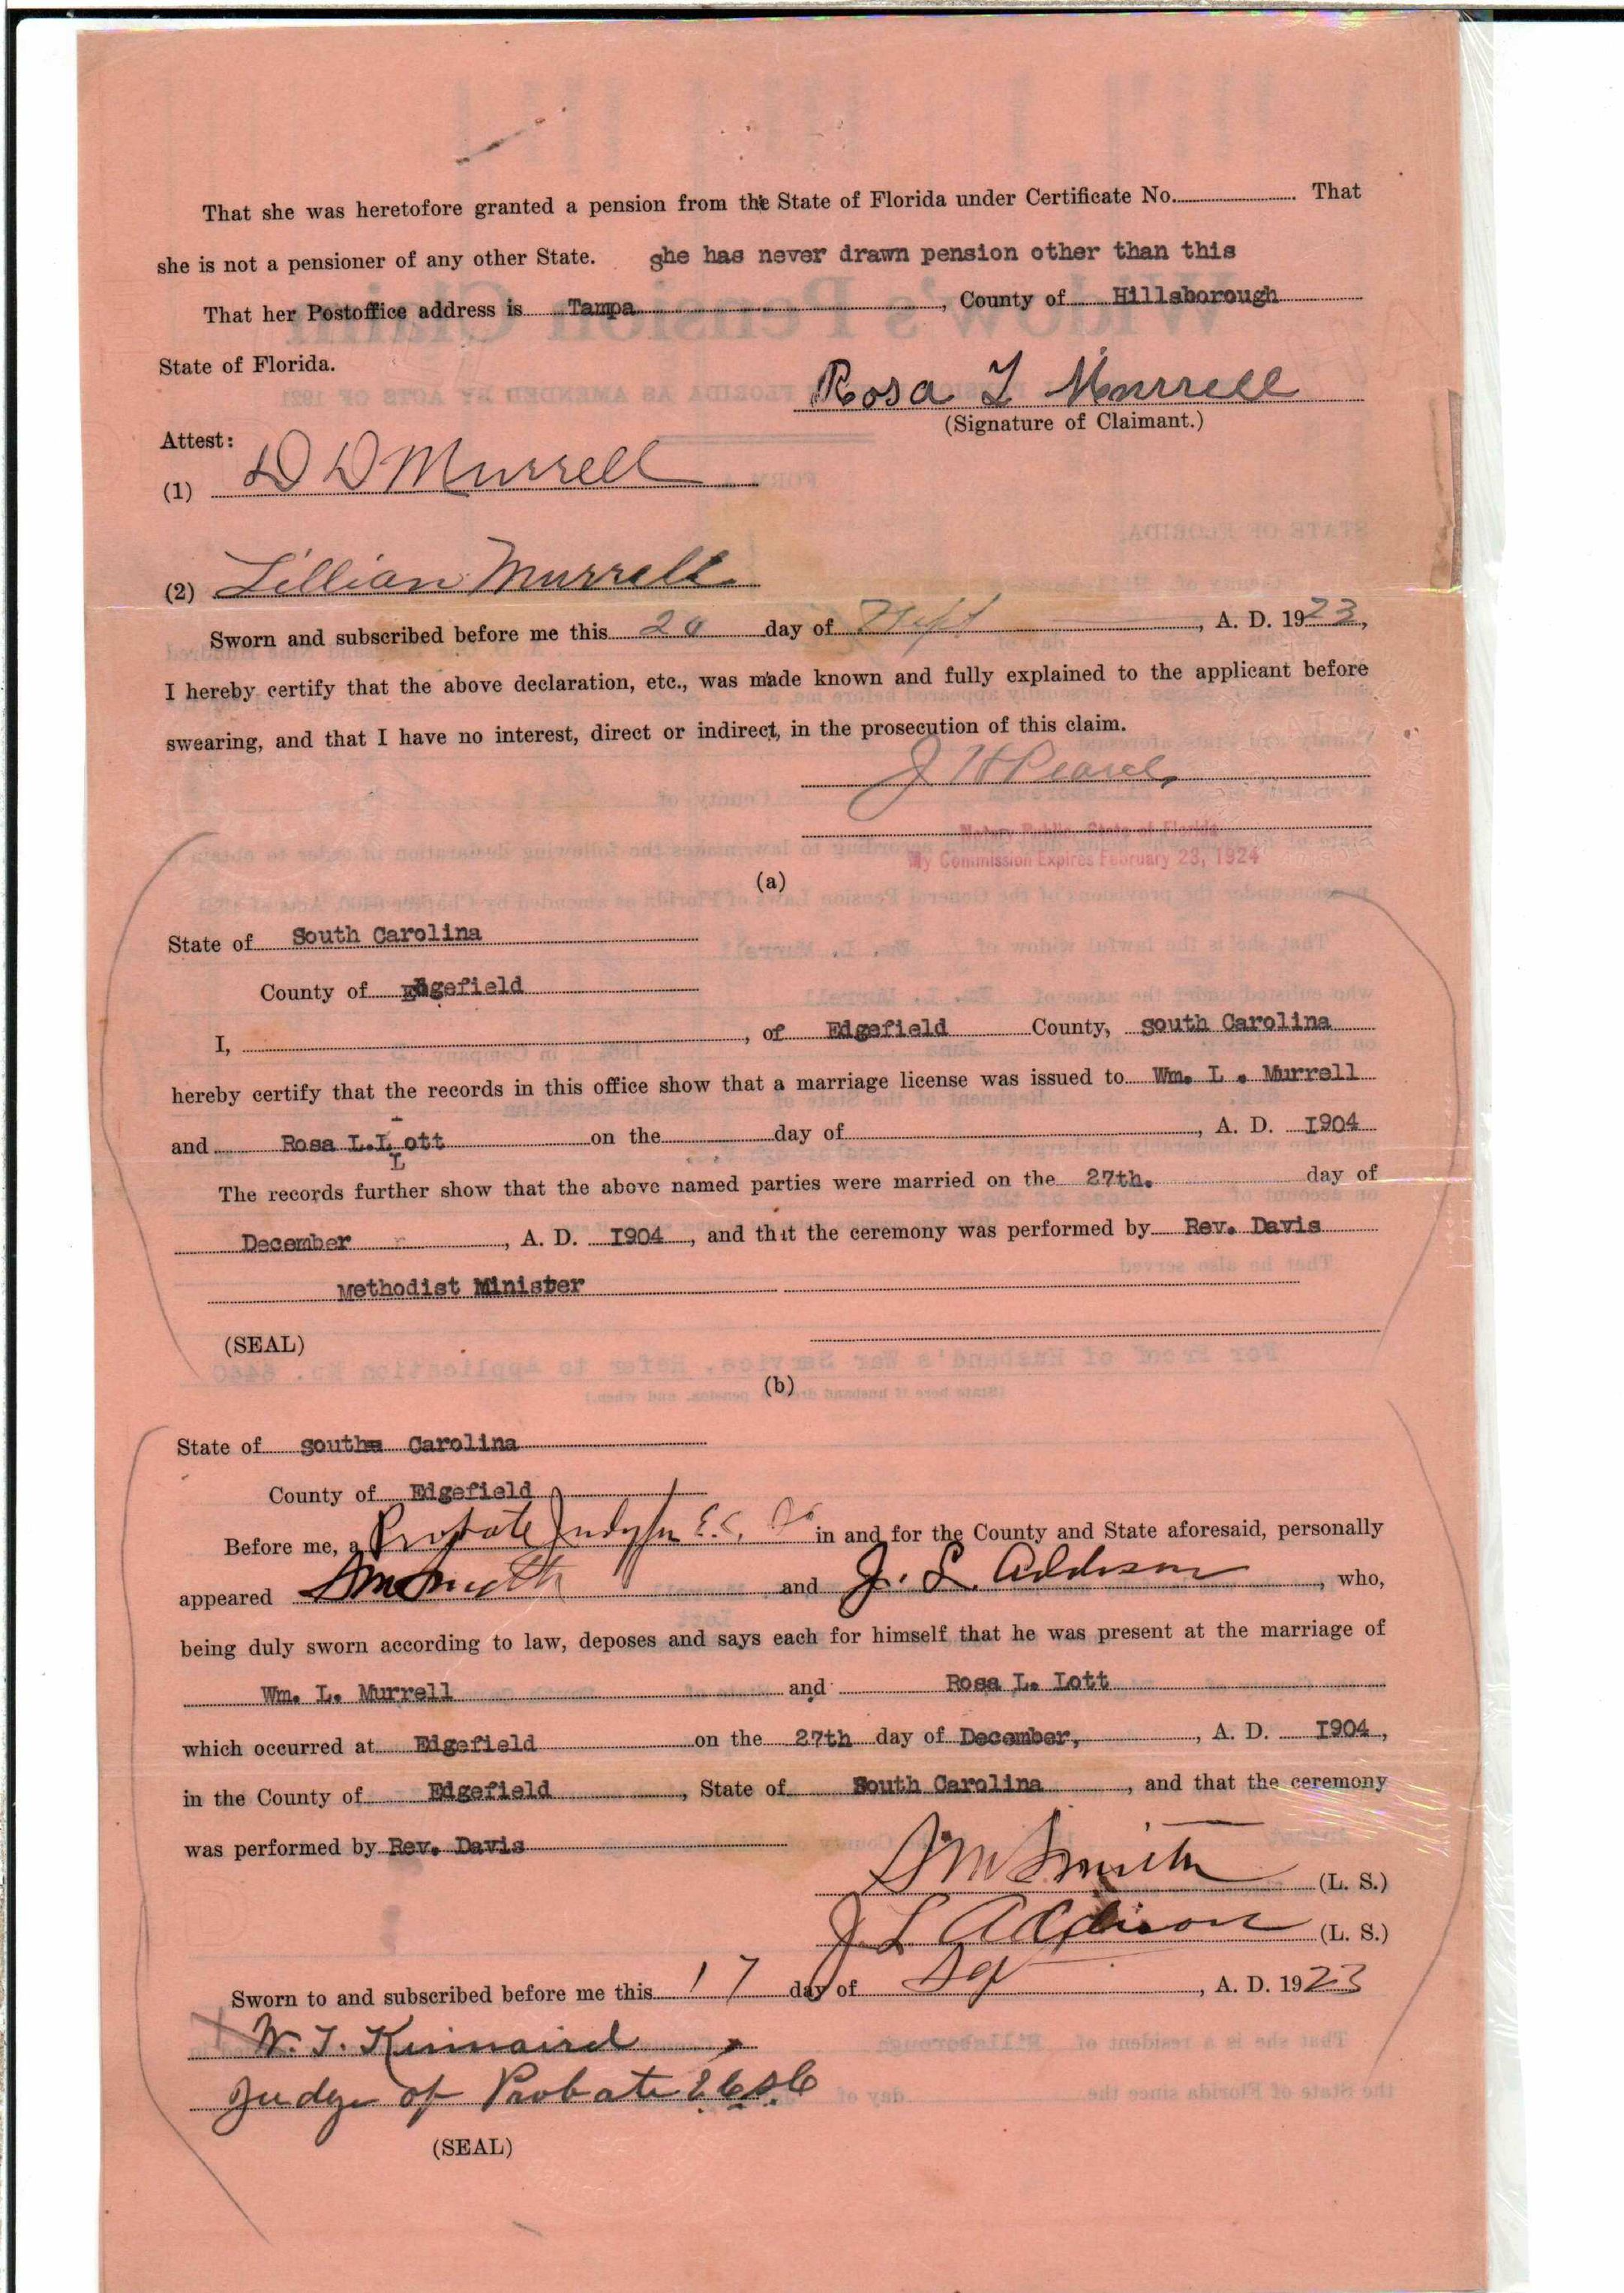 That she was heretofore granted a pension from the State of Florida under Certificate No. That
she is not a pensioner of any other State. she has never drawn pension other than this
That her Postoffice address is Tampa , County of Hillsborough
State of Florida.
Rosa L Murrell
(Signature of Claimant.)
Attest:
(1) D D Murrell
(2) Lillian Murrell
Sworn and subscribed before me this 20 day of Sept , A. D. 1923,
I hereby certify that the above declaration, etc., was made known and fully explained to the applicant before
swearing, and that I have no interest, direct or indirect, in the prosecution of this claim.
J H Pearce
Notary Public, State of Florida
My Commission Expires February 23, 1924
(a)
State of South Carolina
County of Edgefield
I, , of Edgefield County, South Carolina
hereby certify that the records in this office show that a marriage license was issued to Wm. L . Murrell
and Rosa L. Lott on the day of , A. D. 1904
The records further show that the above named parties were married on the 27th. day of
December , A. D. 1904 , and that the ceremony was performed by Rev. Davis
Methodist Minister
(SEAL)
(b)
State of South Carolina
County of Edgefield
Before me, a Probate Judge for E.C. in and for the County and State aforesaid, personally
appeared S M Smith and J. L. Addison , who,
being duly sworn according to law, deposes and says each for himself that he was present at the marriage of
Wm. L. Murrell and Rosa L. Lott
which occurred at Edgefield on the 27th day of December, , A. D. 1904,
in the County of Edgefield , State of South Carolina , and that the ceremony
was performed by Rev. Davis
S M Smith (L. S.)
J L Addison (L. S.)
Sworn to and subscribed before me this 17 day of Sep , A. D. 1923
W. T. Kinnaird
Judge of Probate E C S C
(SEAL)